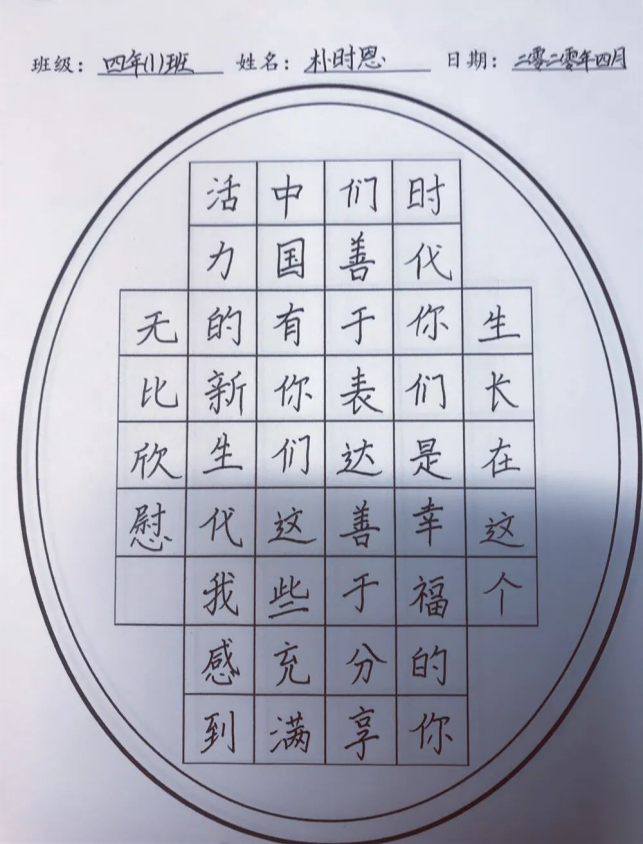 班级：四年(1)班 姓名：朴时恩 日期：二零二零年四月
生长在这个
时代你们是幸福的你
们善于表达善于分享
中国有你们这些充满
活力的新生代我感到
无比欣慰